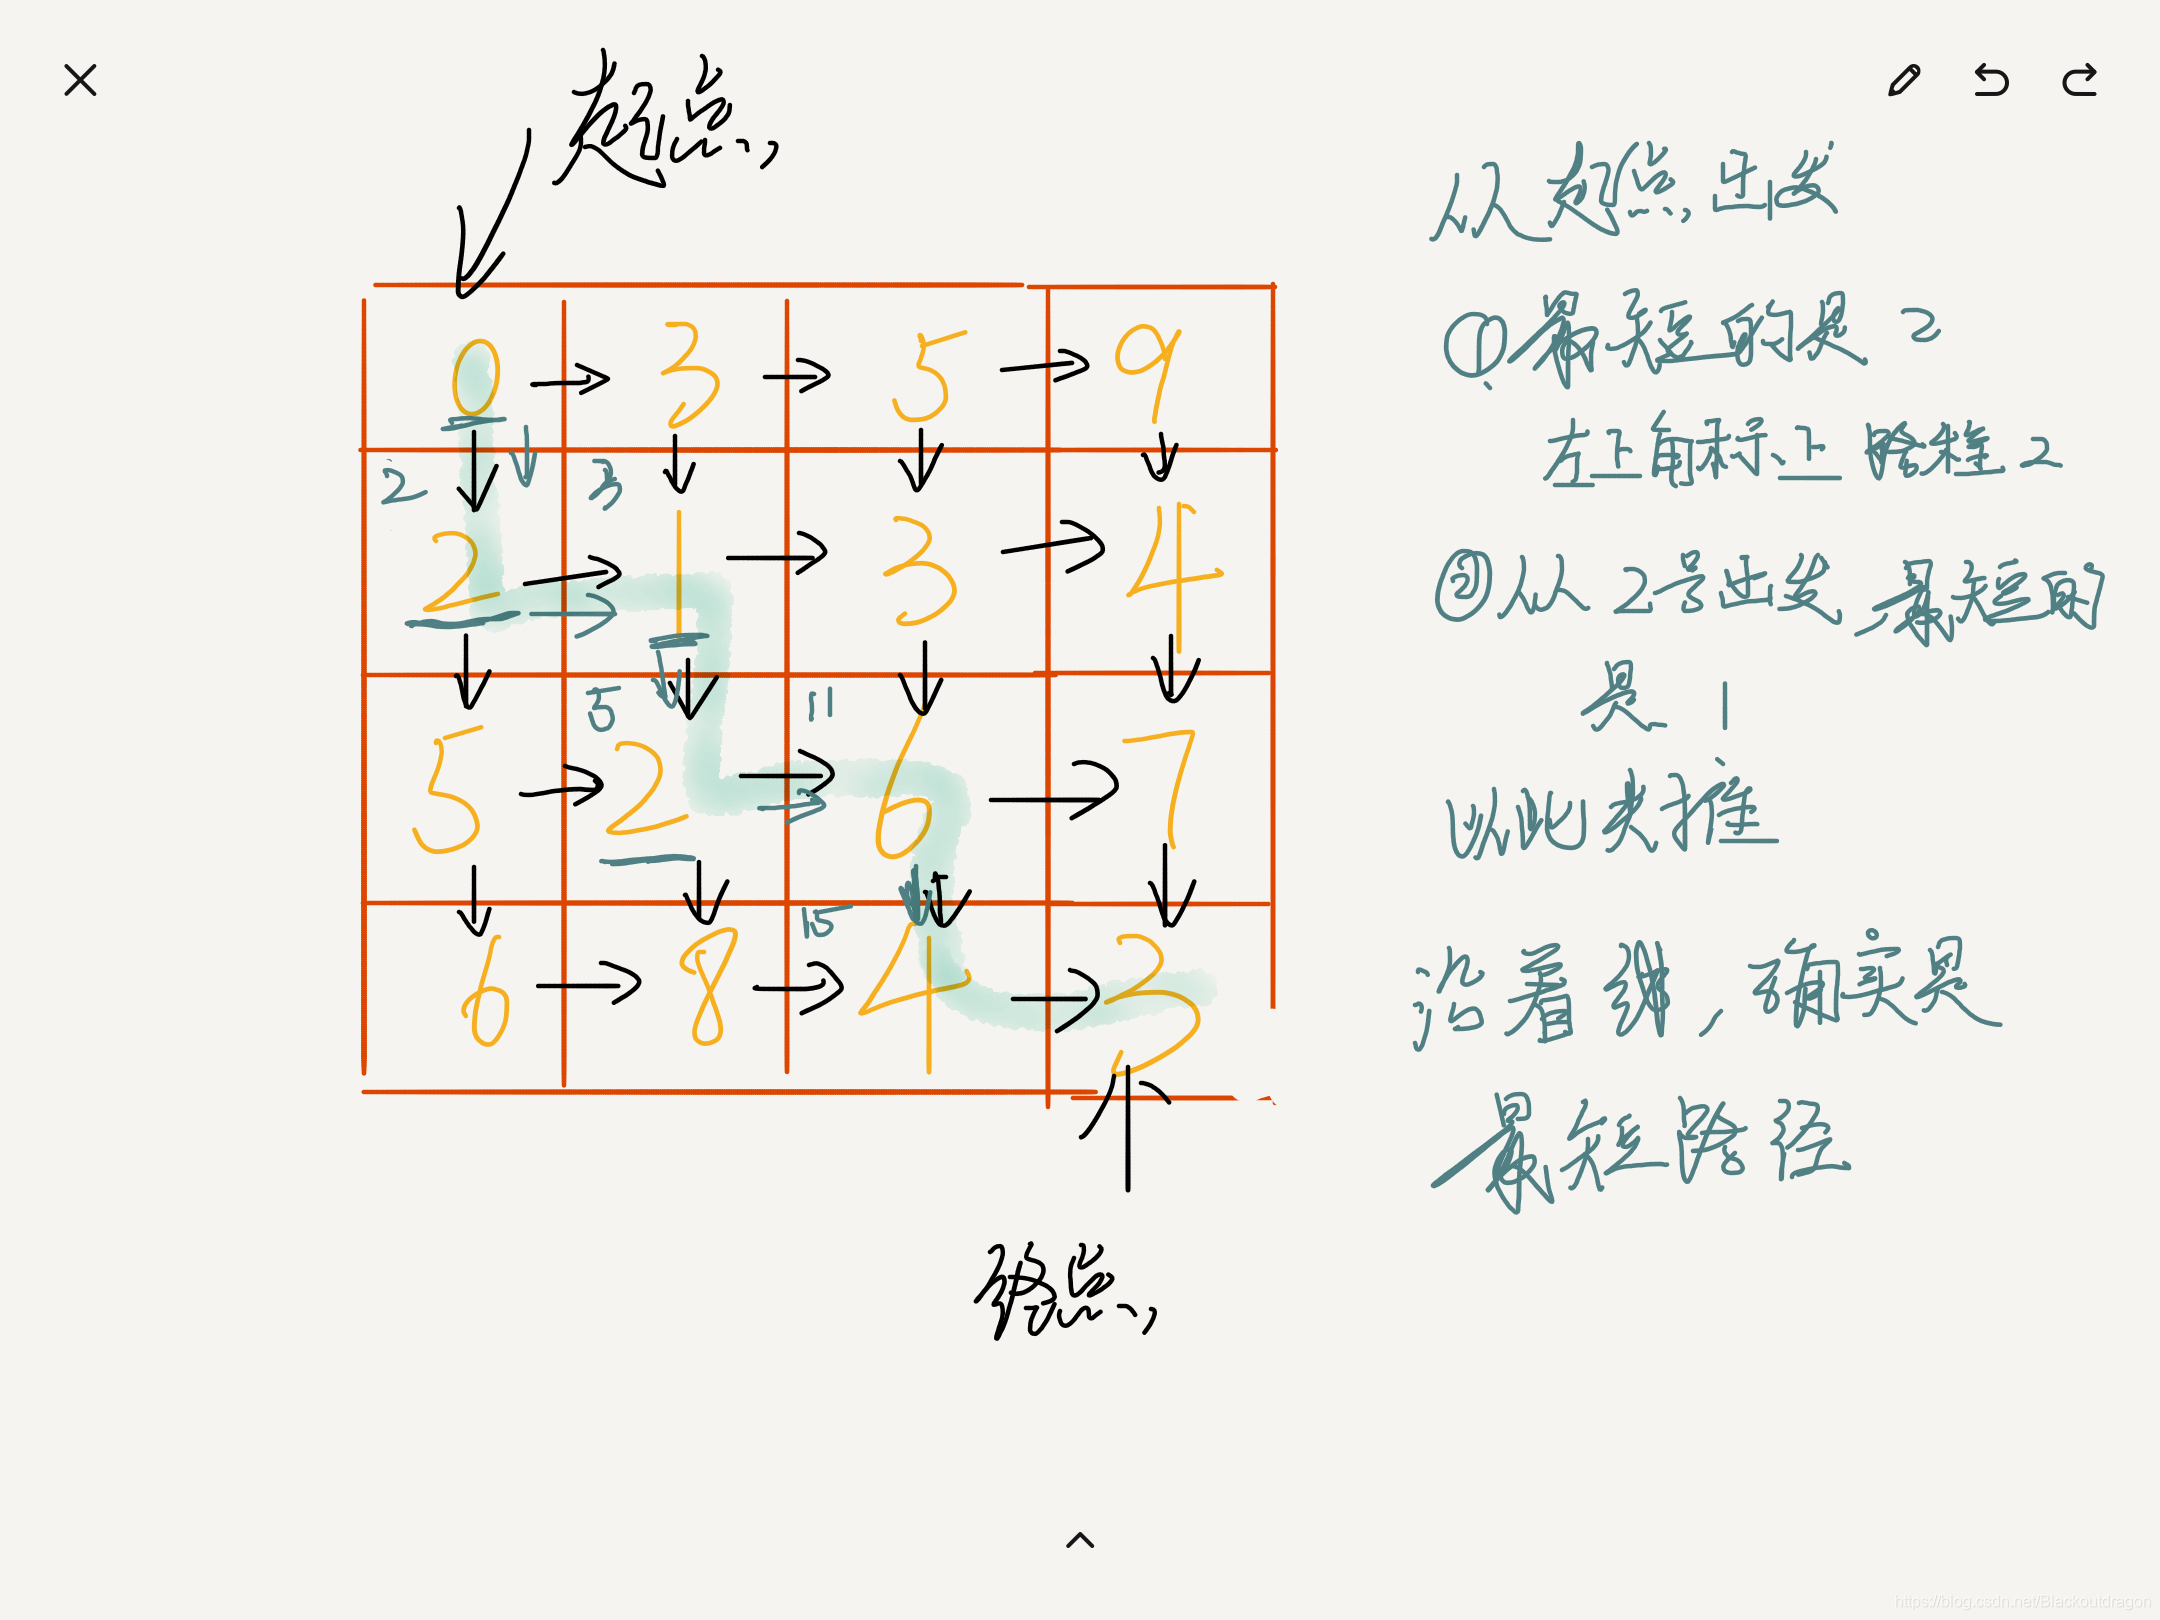 起点
从起点出发
①最短的是 2
左上角标上路程 2
②从 2号出发 最短的
是 1
以此类推
沿着绿, 确实是
最短路径
0 3 5 9
2 3
2 1 3 4
5 11
5 2 6 7
15
6 8 4 3
终点
https://blog.csdn.net/Blackoutdragon